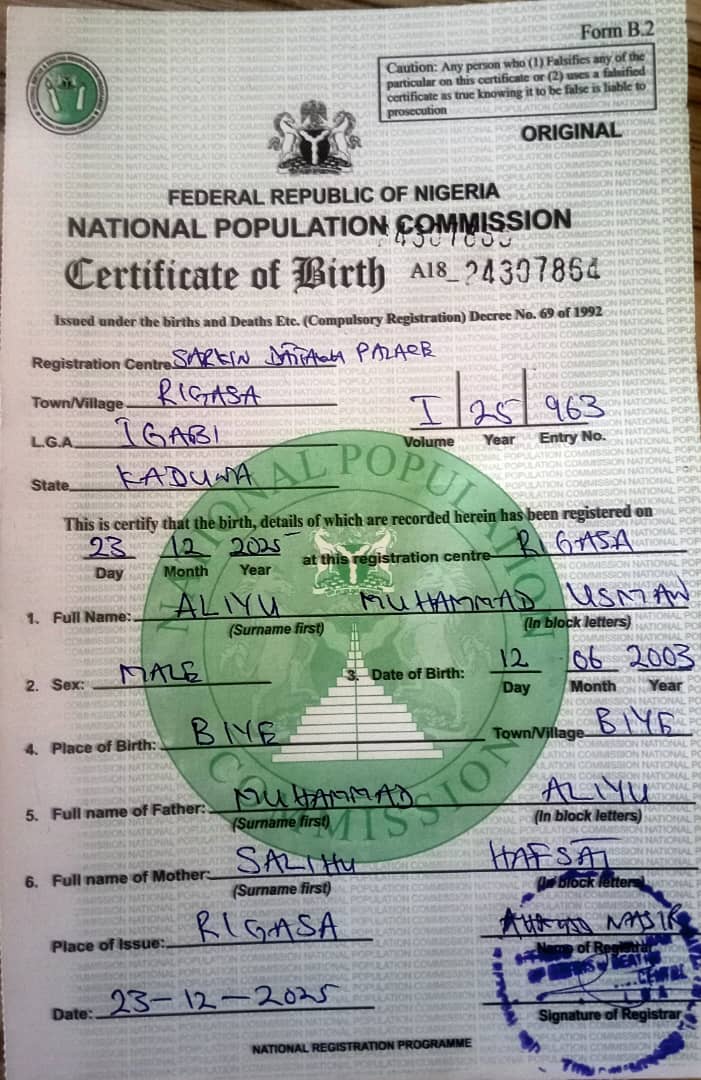 Form B.2
Caution: Any person who (1) Falsifies any of the
particular on this certificate or (2) uses a falsified
certificate as true knowing it to be false is liable to
prosecution
ORIGINAL
FEDERAL REPUBLIC OF NIGERIA
NATIONAL POPULATION COMMISSION
Certificate of Birth A18_ 24307864
Issued under the births and Deaths Etc. (Compulsory Registration) Decree No. 69 of 1992
Registration Centre SARKIN PALACE
Town/Village RIGASA
I 25 963
L.G.A IGABI
Volume Year Entry No.
State KADUNA
This is certify that the birth, details of which are recorded herein has been registered on
23 12 2025 at this registration centre RIGASA
Day Month Year
1. Full Name: ALIYU MUHAMMAD USMAN
(Surname first) (In block letters)
2. Sex: MALE 3. Date of Birth: 12 06 2003
Day Month Year
4. Place of Birth: BIYE Town/Village BIYE
5. Full name of Father: MUHAMMAD ALIYU
(Surname first) (In block letters)
6. Full name of Mother: SALIHU HAFSAT
(Surname first) (In block letters)
Place of Issue: RIGASA NASIR
Name of Registrar
Date: 23-12-2025
Signature of Registrar
NATIONAL REGISTRATION PROGRAMME
NATIONAL POPULATION COMMISSION